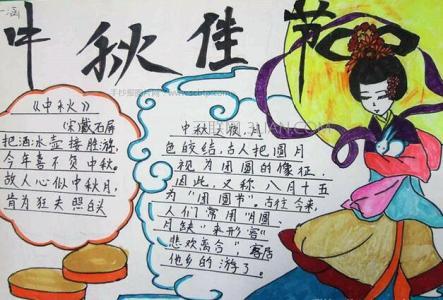 中秋佳节
《中秋》
宋戴石屏
把酒冰壶接胜游,
今年喜不负中秋。
故人心似中秋月,
肯为狂夫照白头
中秋之夜,月
色皎洁,古人把圆月
视为团圆的像征,
因此,又称八月十五
为“团圆节”。古往今来,
人们常用“月圆、
月缺”来形容“
悲欢离合”,客居
他乡的游了。